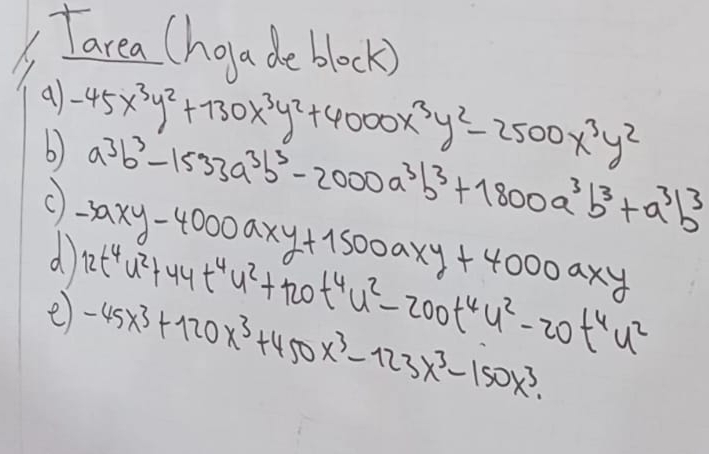 Tarea (hoja de block)
a) -45x³y² + 130x³y² + 4000x³y² - 2500x³y²
b) a³b³ - 1533a³b³ - 2000a³b³ + 1800a³b³ + a³b³
c) -3axy - 4000axy + 1500axy + 4000axy
d) 12t⁴u² + 44t⁴u² + 120t⁴u² - 200t⁴u² - 20t⁴u²
e) -45x³ + 120x³ + 450x³ - 123x³ - 150x³.